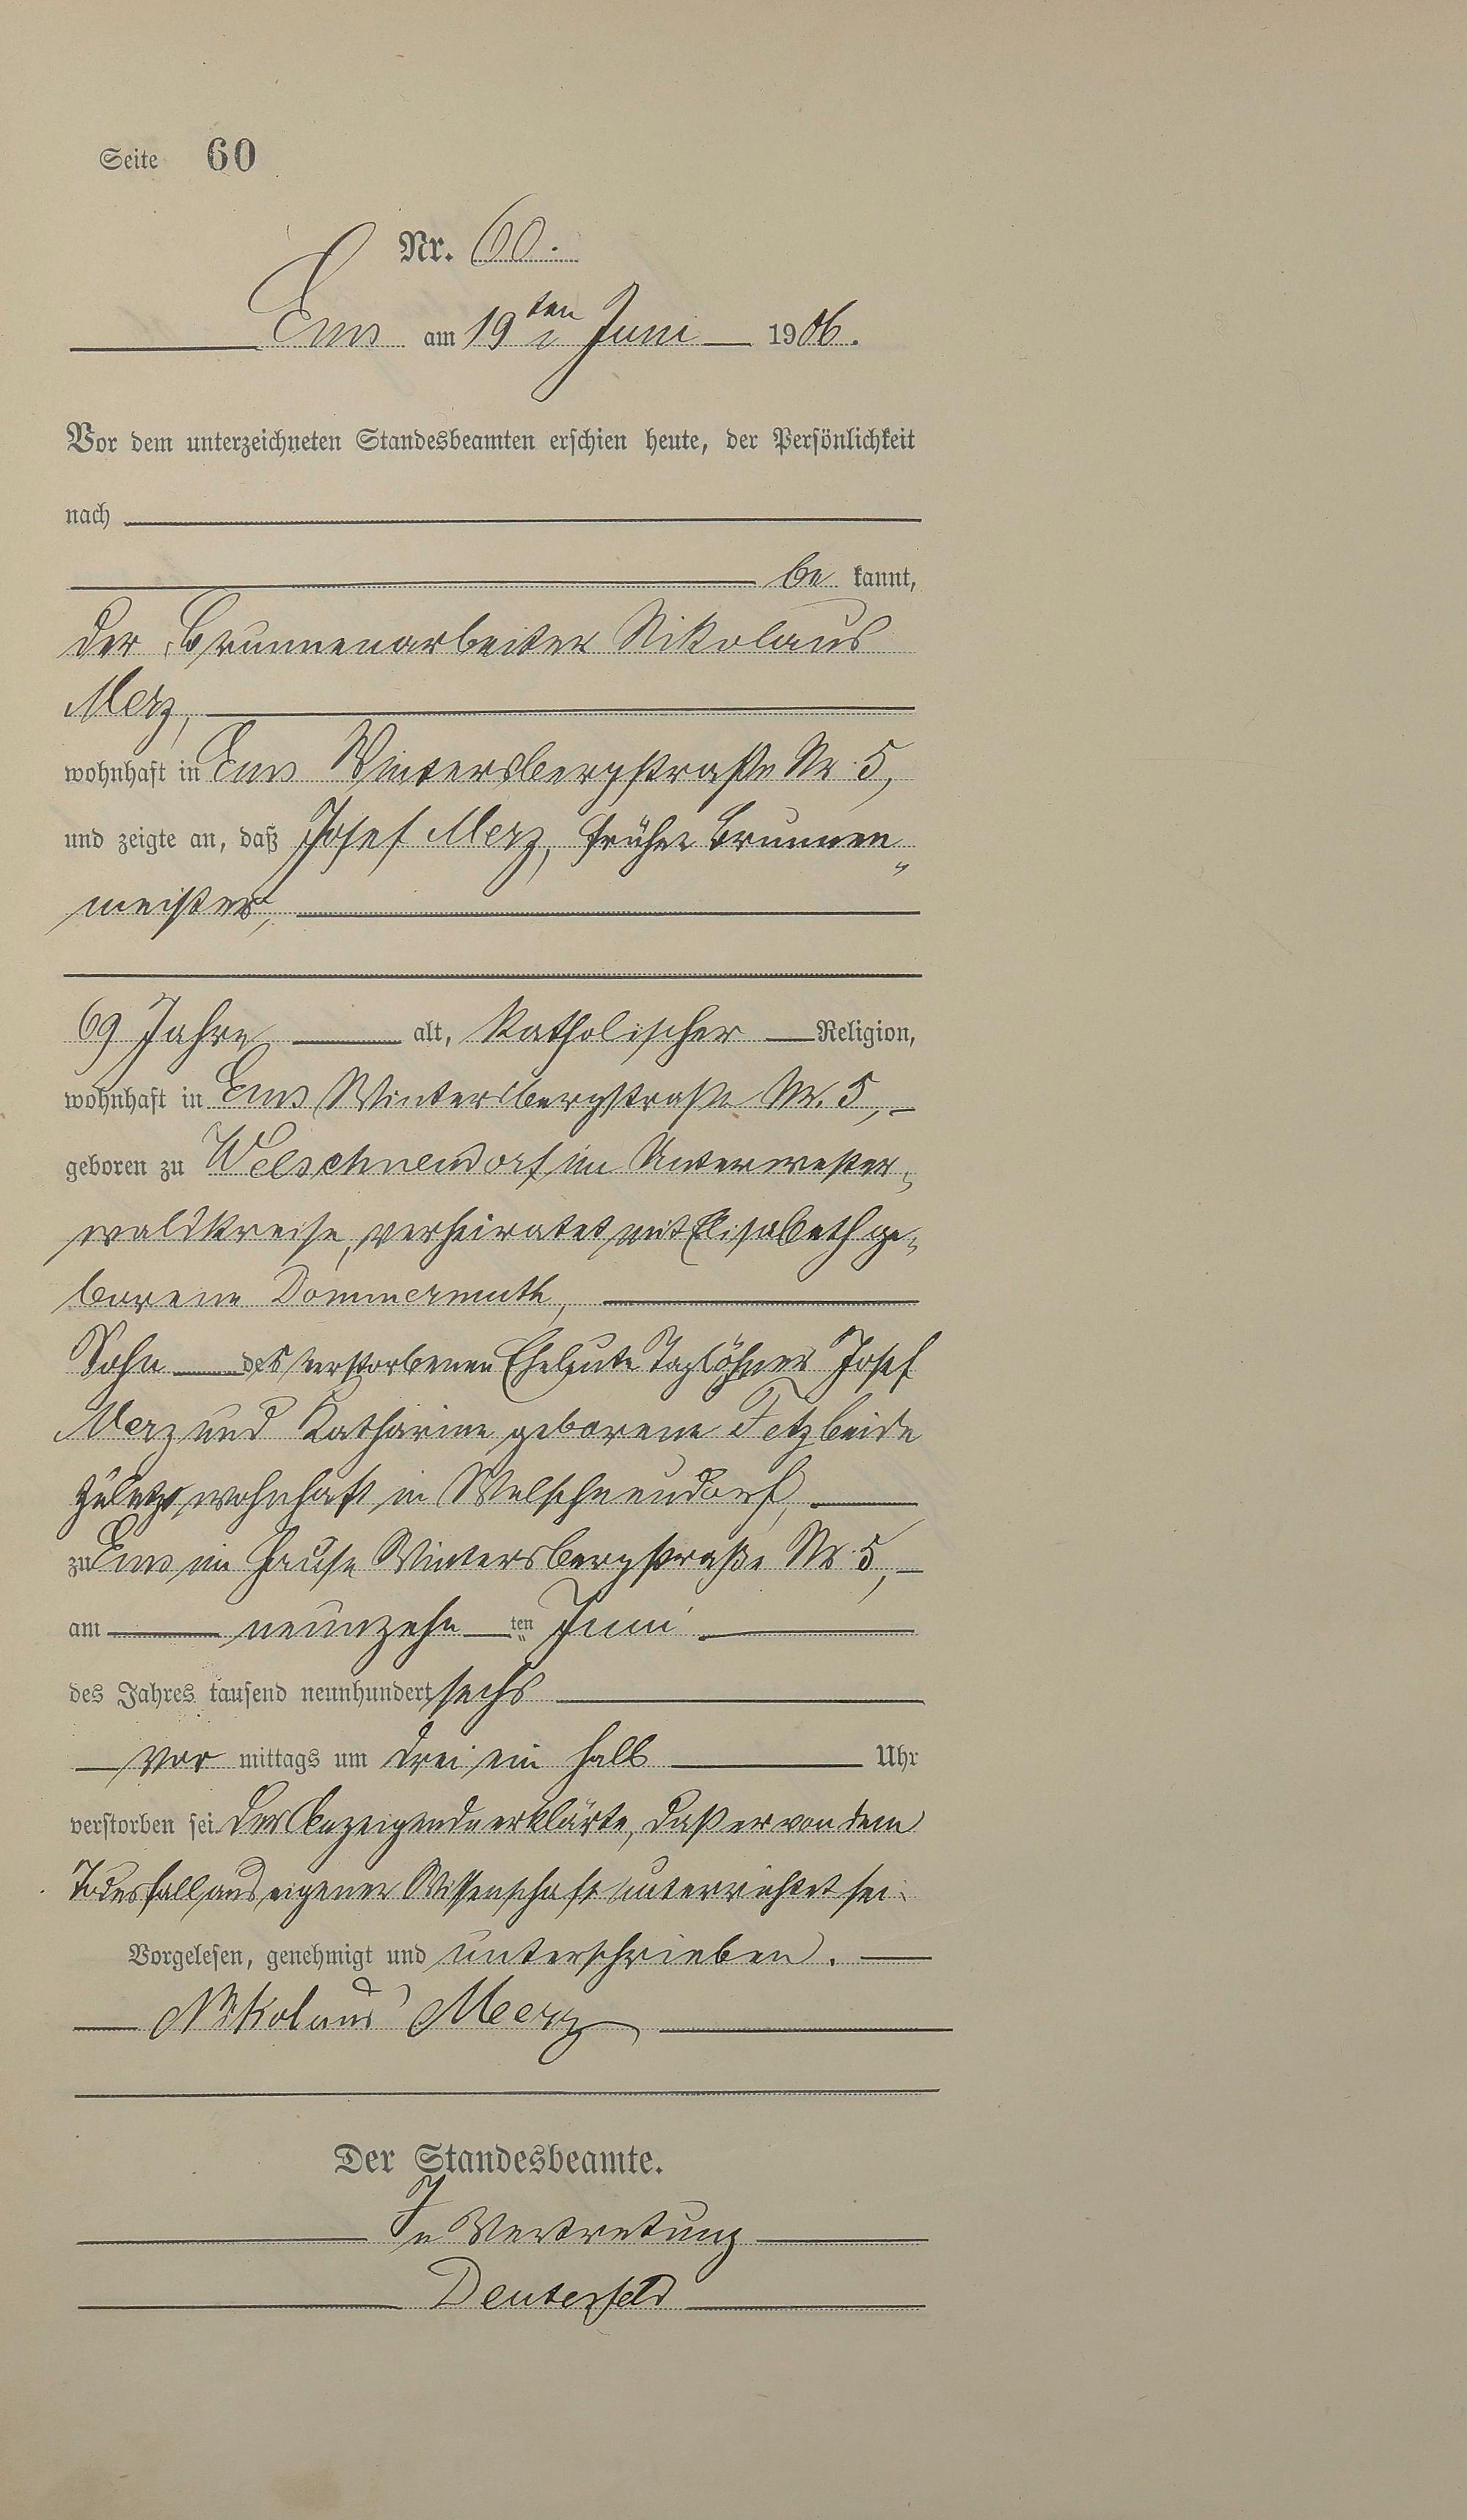 Seite 60
Nr. 60.
Ems am 19ten Juni 1906.
Vor dem unterzeichneten Standesbeamten erschien heute, der Persönlichkeit
nach
be kannt,
der Brunnenarbeiter Nikolaus
Merz,
wohnhaft in Ems Wintersbergstraße Nr. 5,
und zeigte an, daß Josef Merz, früher Brunnen„
meister,
69 Jahre alt, katholischer Religion,
wohnhaft in Ems Wintersbergstraße Nr. 5,
geboren zu Welschneudorf im Unterwester„
waldkreise, verheiratet mit Elisabeth ge„
borene Dommermuth,
Sohn des verstorbenen Eheleute Taglöhner Josef
Merz und Katharine geborene Fetz beide
zuletzt wohnhaft in Welschneudorf,
zu Ems im Hause Wintersbergstraße Nr. 5,
am neunzehn ten Juni
des Jahres tausend neunhundert sechs
Vor mittags um drei ein halb Uhr
verstorben sei. Der Anzeigende erklärte, daß er von dem
Todesfall aus eigener Wissenschaft unterrichtet sei.
Vorgelesen, genehmigt und unterschrieben.
Nikolaus Merz
Der Standesbeamte.
In Vertretung